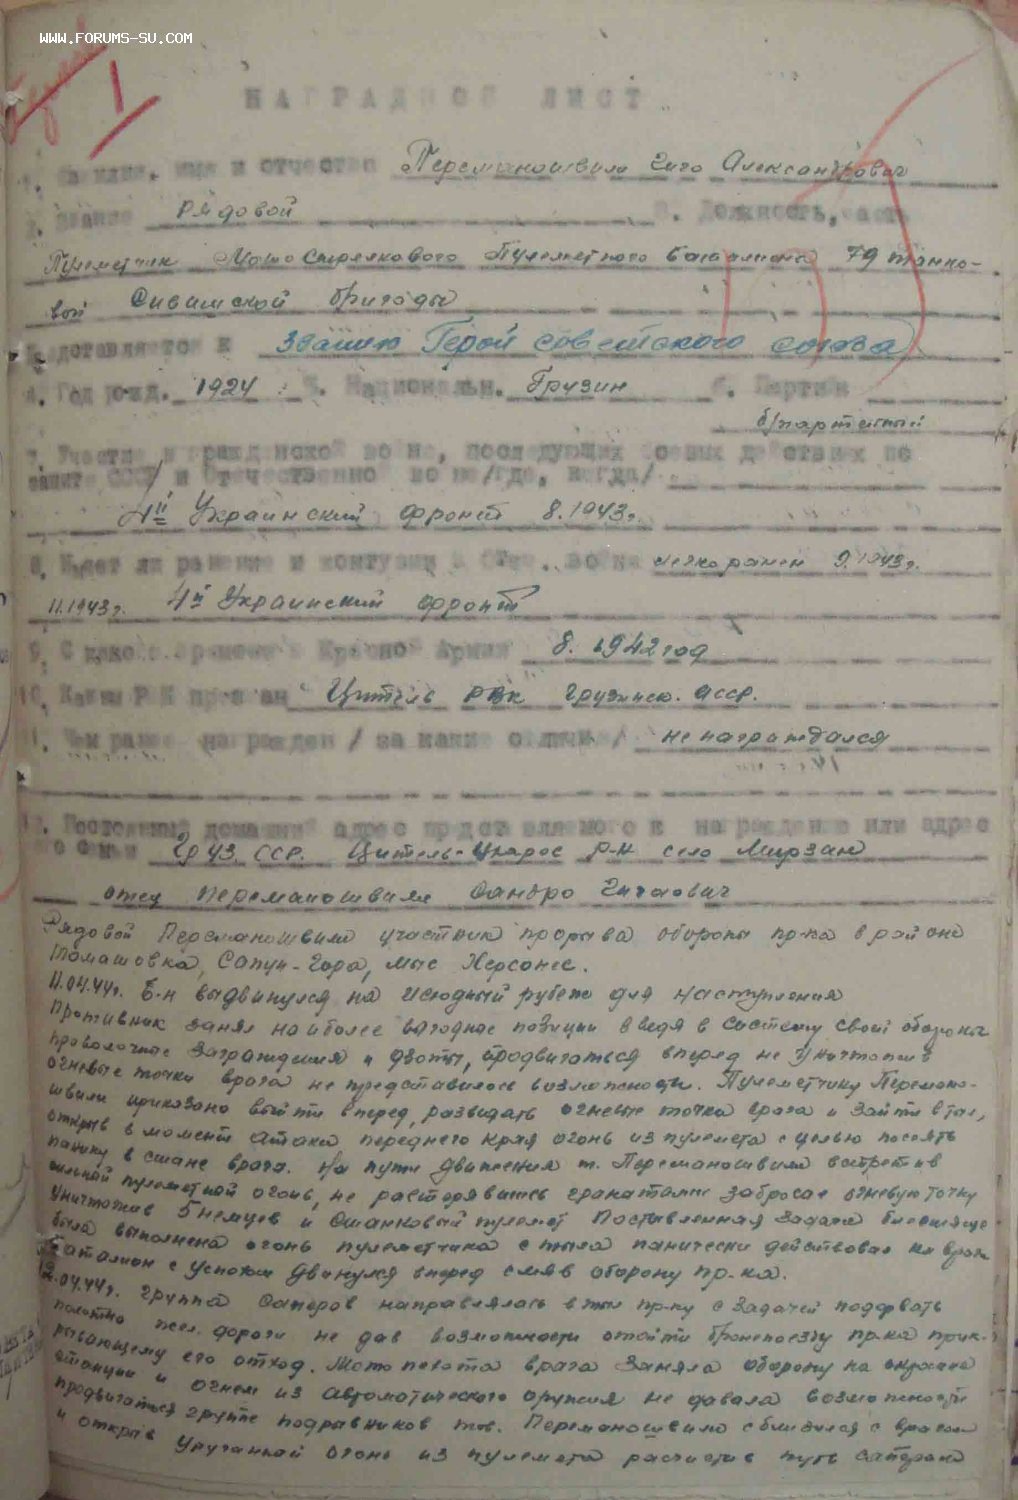 WWW.FORUMS-SU.COM
1
НАГРАДНОЙ ЛИСТ
1. Фамилия, имя и отчество Переманошвили Гиго Александрович
2. Звание рядовой 3. Должность, часть
Пулеметчик Мото Стрелкового Пулеметного батальона 79 танко-
вой Сивашской бригады
Представляется к званию Герой Советского Союза
4. Год рожд. 1924 5. Национальн. Грузин 6. Партийн
б/партейный
7. Участие в гражданской войне, последующих боевых действиях по
защите СССР и Отечественной войне /где, когда/
4й Украинский фронт 8.1943г.
8. Имеет ли ранение и контузии в Отеч. войне легко ранен 9.1943г.
11.1943г. 4й Украинский фронт
9. С какого времени в Красной Армии 8. 1942 год
10. Каким РВК призван Цитель РВК Грузинск. АССР.
11. Чем ранее награжден /за какие отличия/ не награждался
12. Постоянный домашний адрес представляемого к награждению или адрес
его семьи Груз ССР. Цитель-Цкарос р-н село Мирзан
отец Переманошвили Сандро Гигаович
Рядовой Переманошвили участник прорыва обороны пр-ка в районе
Томашовка, Сапун-Гора, мыс Херсонес.
11.04.44г. Б-н выдвинулся на исходный рубеж для наступления
Противник занял наиболее выгодные позиции введя в систему своей обороны
проволочные заграждения и дзоты, продвигаться вперед не уничтожив
огневые точки врага не представилось возможности. Пулеметчику Перемано-
швили приказано выйти вперед, разведать огневые точки врага и зайти в тыл,
открыв в момент атаки переднего края огонь из пулемета с целью посеять
панику в стане врага. На пути движения т. Переманошвили встретив
сильный пулеметной огонь, не растерявшись гранатами забросал огневую точку
уничтожив 5 немцев и станковый пулемет. Поставленная задача блестяще
была выполнена огонь пулеметчика с тыла панически действовал на врага
Батальон с успехом двинулся вперед смяв оборону пр-ка.
12.04.44г. группа саперов направлялась в тыл пр-ку с задачей подорвать
полотно жел. дороги не дав возможности отойти бронепоезду пр-ка прик-
рывающему его отход. Мото пехота врага заняла оборону на окраине
станции и огнем из автоматического оружия не давала возможности
продвигаться группе подрывников тов. Переманошвили сблизился с врагом
и открыв ураганный огонь из пулемета расчистив путь саперам